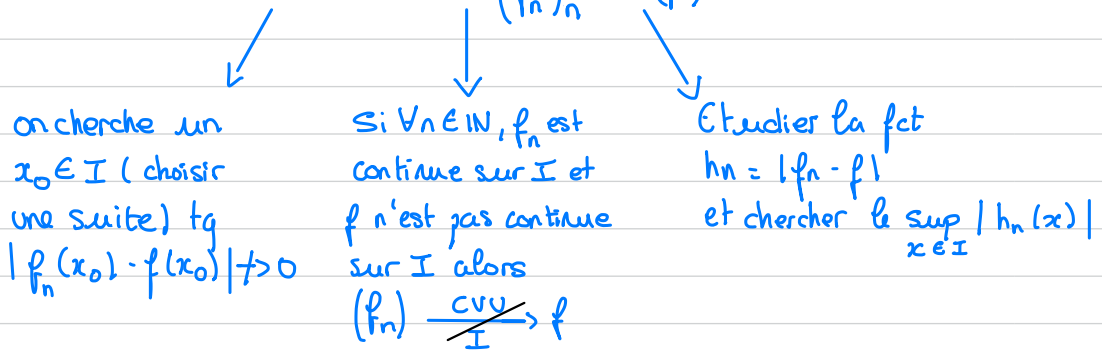 (fn)n
on cherche un
x₀ ∈ I ( choisir
une suite) tq
|fn(x₀) - f(x₀)| ↛ 0
Si ∀n ∈ IN, fn est
continue sur I et
f n'est pas continue
sur I alors
(fn) CVU f
I
Etudier la fct
hn = |fn - f|
et chercher le sup |hn(x)|
x ∈ I